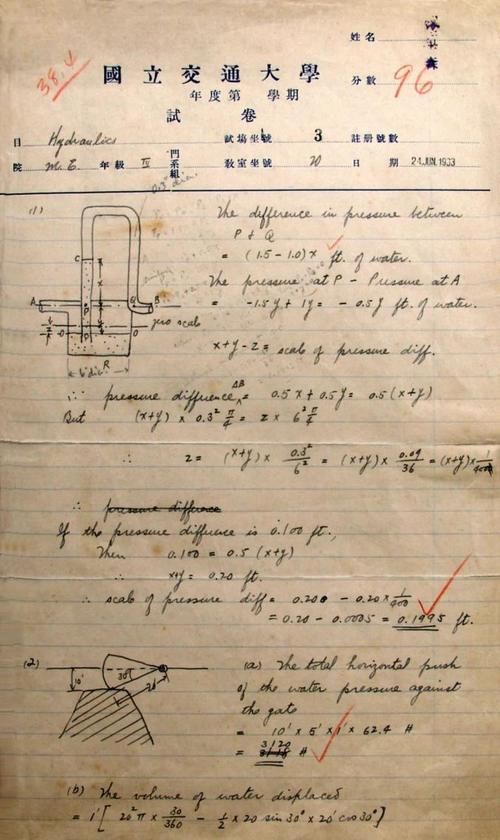 姓名
38.4
國立交通大學
分數 96
年度第 學期
試卷
目 Hydraulics 試場坐號 3 註册號數
院 M.E. 年級 IV 門系組 教室坐號 20 日期 24 JUN. 1933
0.3" dia.
(1) The difference in pressure between
P & Q
= (1.5 - 1.0)x ft. of water.
The pressure at P - Pressure at A
= -1.5y + 1y = - 0.5y ft. of water.
C
A
Q
B
P
zero scale
O
O
R
6" dia
x+y-z = scale of pressure diff.
∴ pressure difference AB = 0.5x + 0.5y = 0.5(x+y)
But (x+y) x 0.3² π/4 = z x 6² π/4
∴ z = (x+y) x 0.3²/6² = (x+y) x 0.09/36 = (x+y) x 1/400
∴ pressure difference
If the pressure difference is 0.100 ft.,
Then 0.100 = 0.5 (x+y)
∴ x+y = 0.20 ft.
∴ scale of pressure diff = 0.200 - 0.20 x 1/400
= 0.20 - 0.0005 = 0.1995 ft.
(2) (a) The total horizontal push
10'
30°
20'
of the water pressure against
the gate
= 10' x 5' x 1' x 62.4 #
= 3120 #
(b) The volume of water displaced
= 1' [ 20² π x 30/360 - 1/2 x 20 sin 30° x 20' cos 30° ]